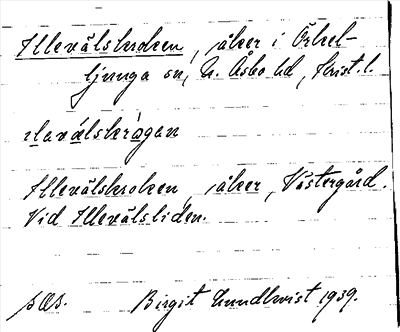 Illevålskroken, åker i Örkel-
ljunga sn, N. Åsbo hd, Krist. l.
ɪlavålskrågan
Illevålskroken, åker, Västergård.
Vid Illevålsliden.
Birgit Lundkvist 1939.